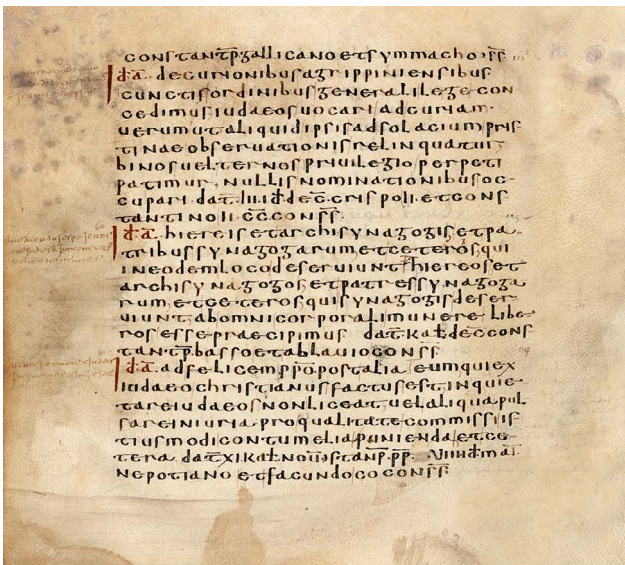 constantp gallicano et symmacho ss
idā decurionibus agrippiniensibus
cunctis ordinibus generali lege con
cedimus iudaeos uocari ad curiam
uerum ut aliquid ipsis ad solacium pris
tinae obseruationis relinquatur
binos uel ternos priuilegio perpeti
patimur nullis nominationibus oc
cupari dat iii id dec crispo ii et cons
tantino ii cc conss
idā hiereis et archisynagogis et pa
tribus synagogarum et ceteros qui
in eodem loco deseruiunt hiereos et
archisynagogos et patres synagoga
rum et ceteros qui synagogis deser
uiunt ab omni corporali munere libe
ros esse praecipimus dat kal dec cons
tantp basso et ablauio conss
idā ad felicem ppo post alia eum qui ex
iudaeo christianus factus est inquie
tare iudaeos non liceat uel aliqua pul
sare iniuria pro qualitate commissi is
tiusmodi contumelia punienda et ce
tera dat xi kal nou constanp pp uiii id mai
nepotiano et facundo co conss